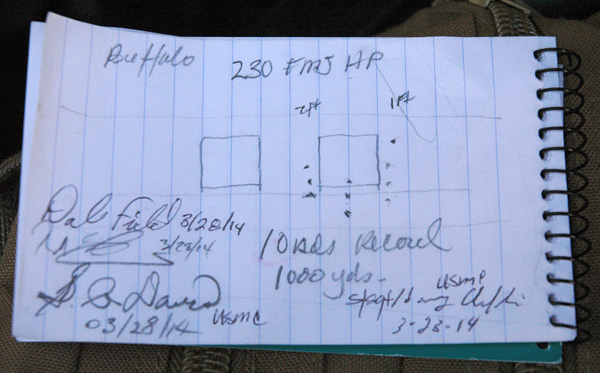 Buffalo
230 FMJ HP
2ft 1ft
Dale Field 3/28/14
3/28/14
10 Rds Record
1000 yds-
USMC
S/Sgt
3-28-14
USMC
03/28/14